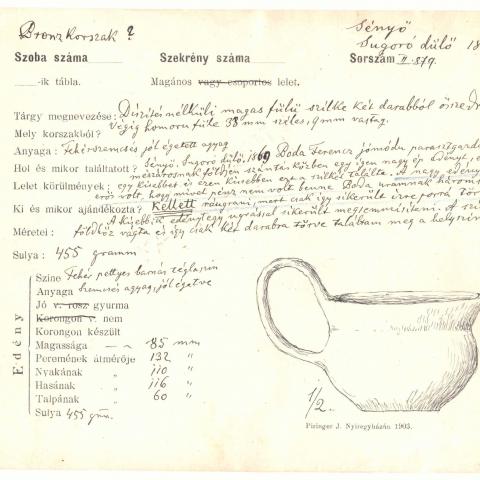 Bronz Korszak ?
Sényő
Sugoró dülő 18
Szoba száma
Szekrény száma
Sorszám II. 379.
-ik tábla.
Magános vagy csoportos lelet.
Tárgy megnevezése: Díszítésnélküli magas fülü szilke két darabból össze
Végig homorn füle 38 mm széles, 9 mm vastag.
Mely korszakból?
Anyaga: Fehérszemcsés jól égetett agyag
Hol és mikor találtatott? Sényő. Sugoró dülő. 1869 Boda Ferencz jómódu parasztgazda
földjén szántás közben egy igen nagy ép edényt,
Lelet körülmények: egy kisebbet és ezen kisebben ezen szilkét találta. A nagy edény
erős volt, hogy mivel pénz nem volt benne Boda urannak három
Ki és mikor ajándékozta? Kellett ráugrani, mert csak így sikerült izreporrá tör
A kisebbik edényt egy ugrással sikerült megsemmisíteni. A szil
Méretei: földhöz vágta és így csak két darabra törve találtam meg a helyszin
Sulya: 455 gramm
Edény
Szine Fehér pettyes barnás téglaszin
Anyaga Szemcsés agyag, jól égetve
Jó v. rosz gyurma
Korongon v. nem
Korongon készült
Magassága 85 mm
Peremének átmérője 132 "
Nyakának " 110 "
Hasának " 116 "
Talpának " 60 "
Sulya 455 gm.
1/2.
Piringer J. Nyiregyházán 1903.